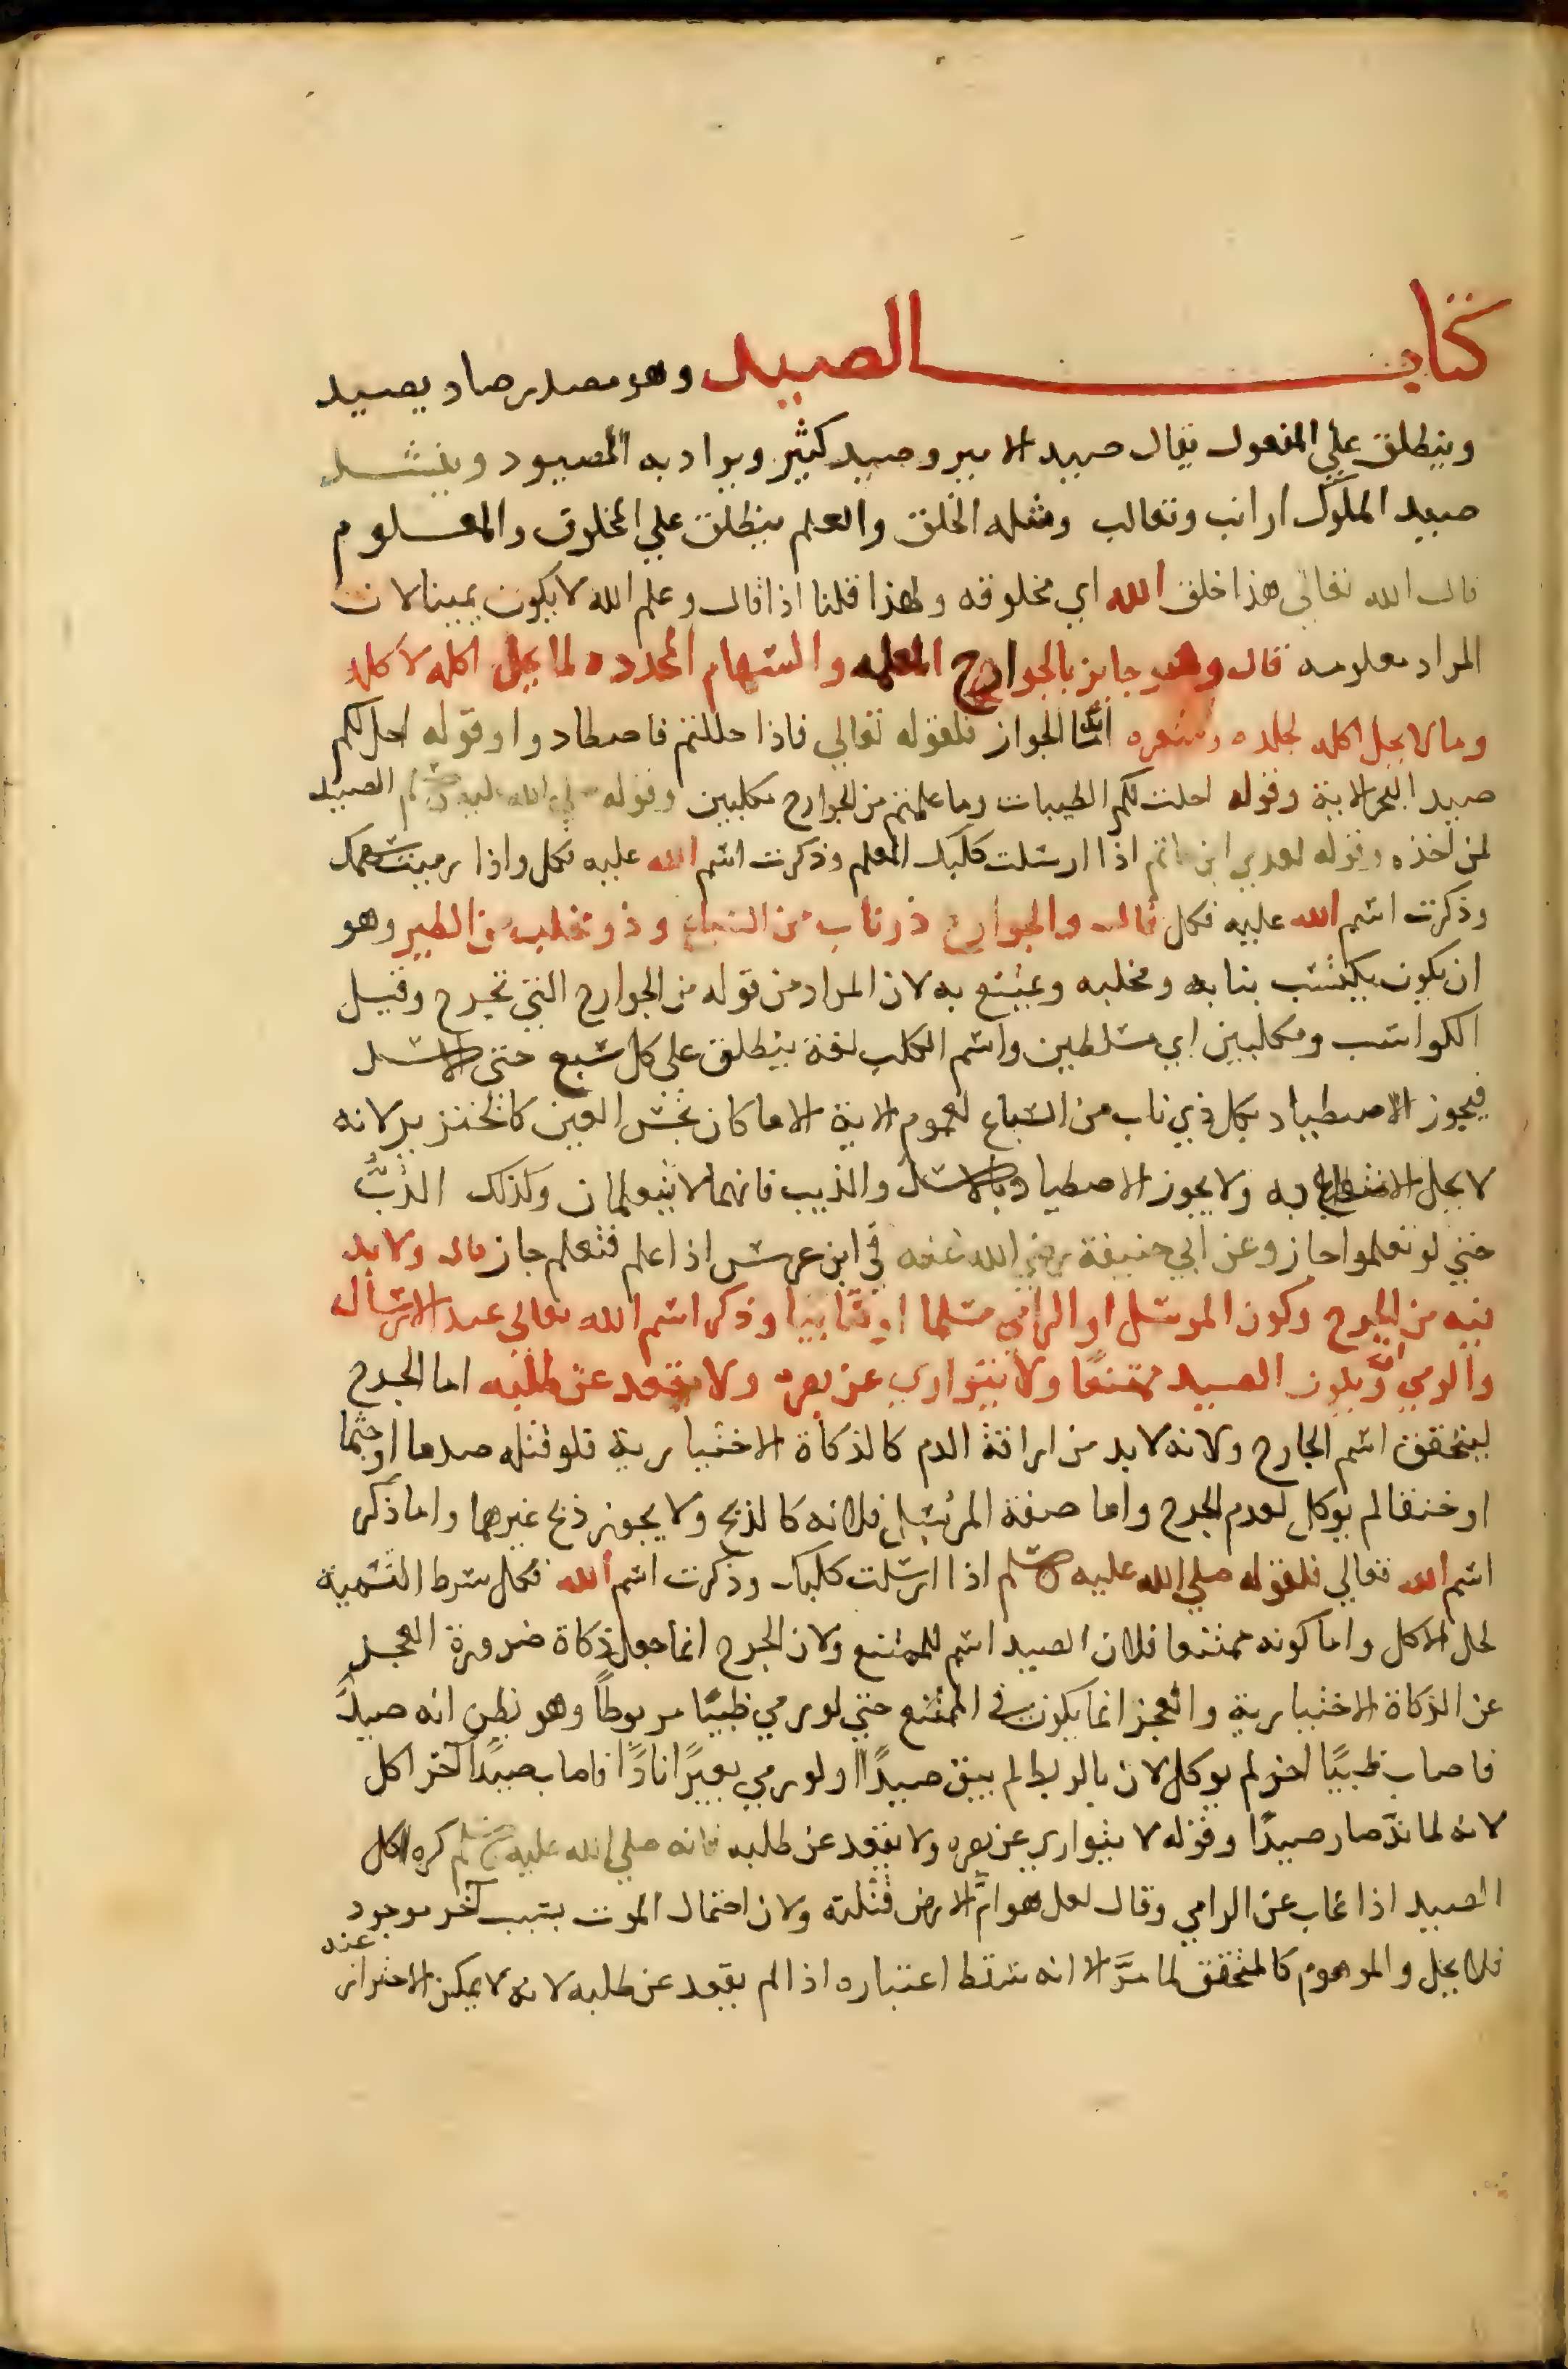 كتاب الصيد وهو مصدر صاد يصيد
وينطلق علي المفعول يقال صيد الامير وصيد كثير ويراد به المصيود وينشد
صيد الملوك ارانب وثعالب ومثله الخلق والعلم ينطلق علي المخلوق والمعلوم
قال الله تعالي هذا خلق الله اي مخلوقه ولهذا قلنا اذا قال وعلم الله لا يكون يمينا لان
المراد معلومه قال وهو جايز بالجوارح المعلمه والسهام المحدده لما يحل اكله لاكله
وما لا يحل اكله لجلده وشعره اما الجواز فلقوله تعالي فاذا حللتم فاصطادوا وقوله احل لكم
صيد البحر الاية وقوله احلت لكم الطيبات وما علمتم من الجوارح مكلبين وقوله صلي الله عليه وسلم الصيد
لمن اخذه وقوله لعدي ابن حاتم اذا ارسلت كلبك المعلم وذكرت اسم الله عليه فكل واذا رميت سهمك
وذكرت اسم الله عليه فكل قال والجوارح ذو ناب من السباع وذو مخلب من الطير وهو
ان يكون يكتسب بنابه ومخلبه ويمتنع به لان المراد من قوله من الجوارح التي تجرح وقيل
الكواسب ومكلبين اي مسلطين واسم الكلب لغة ينطلق على كل سبع حتى الاسد
فيجوز الاصطياد بكل ذي ناب من السباع لعموم الاية الا ما كان نجس العين كالخنزير لانه
لا يحل الانتفاع به ولا يجوز الاصطياد بالاسد والذيب فانهما لا يتعلمان وكذلك الدب
حتي لو تعلموا جاز وعن ابي حنيفة رضي الله عنه في ابن عرس اذا علم فتعلم جاز قال ولا بد
فيه من الجرح وكون المرسل او الرامي مسلما او كتابيا وذكر اسم الله تعالي عند الارسال
والرمي وان يكون الصيد ممتنعًا ولا يتواري عن بصره ولا يقعد عن طلبه اما الجرح
ليتحقق اسم الجارح ولانه لا بد من اراقة الدم كالذكاة الاختيارية فلو قتله صدما او جثما
او خنقا لم يوكل لعدم الجرح واما صفة المرسل فلانه كالذبح ولا يجوز ذبح غيرهما واما ذكر
اسم الله تعالي فلقوله صلي الله عليه وسلم اذا ارسلت كلبك وذكرت اسم الله فكل شرط التسمية
لحل الاكل واما كونه ممتنعا فلان الصيد اسم للممتنع ولان الجرح انما جعل ذكاة ضرورة العجز
عن الذكاة الاختيارية والعجز انما يكون في الممتنع حتي لو رمي ظبيًا مربوطًا وهو يظن انه صيدً
فاصاب ظبيًا اخر لم يوكل لان بالربط لم يبق صيدًا ولو رمي بعيرًا نادًا فاصاب صيدًا آخر اكل
لانه لما ندَّ صار صيدًا وقوله لا يتواري عن بصره ولا يقعد عن طلبه فانه صلي الله عليه وسلم كره اكل
الصيد اذا غاب عن الرامي وقال لعل هوامَّ الارض قتلته ولان احتمال الموت بسبب آخر موجود
فلا يحل والموهوم كالمتحقق لما مرَّ الا انه سقط اعتباره اذا لم يقعد عن طلبه لانه لا يمكن الاحتراز عنه